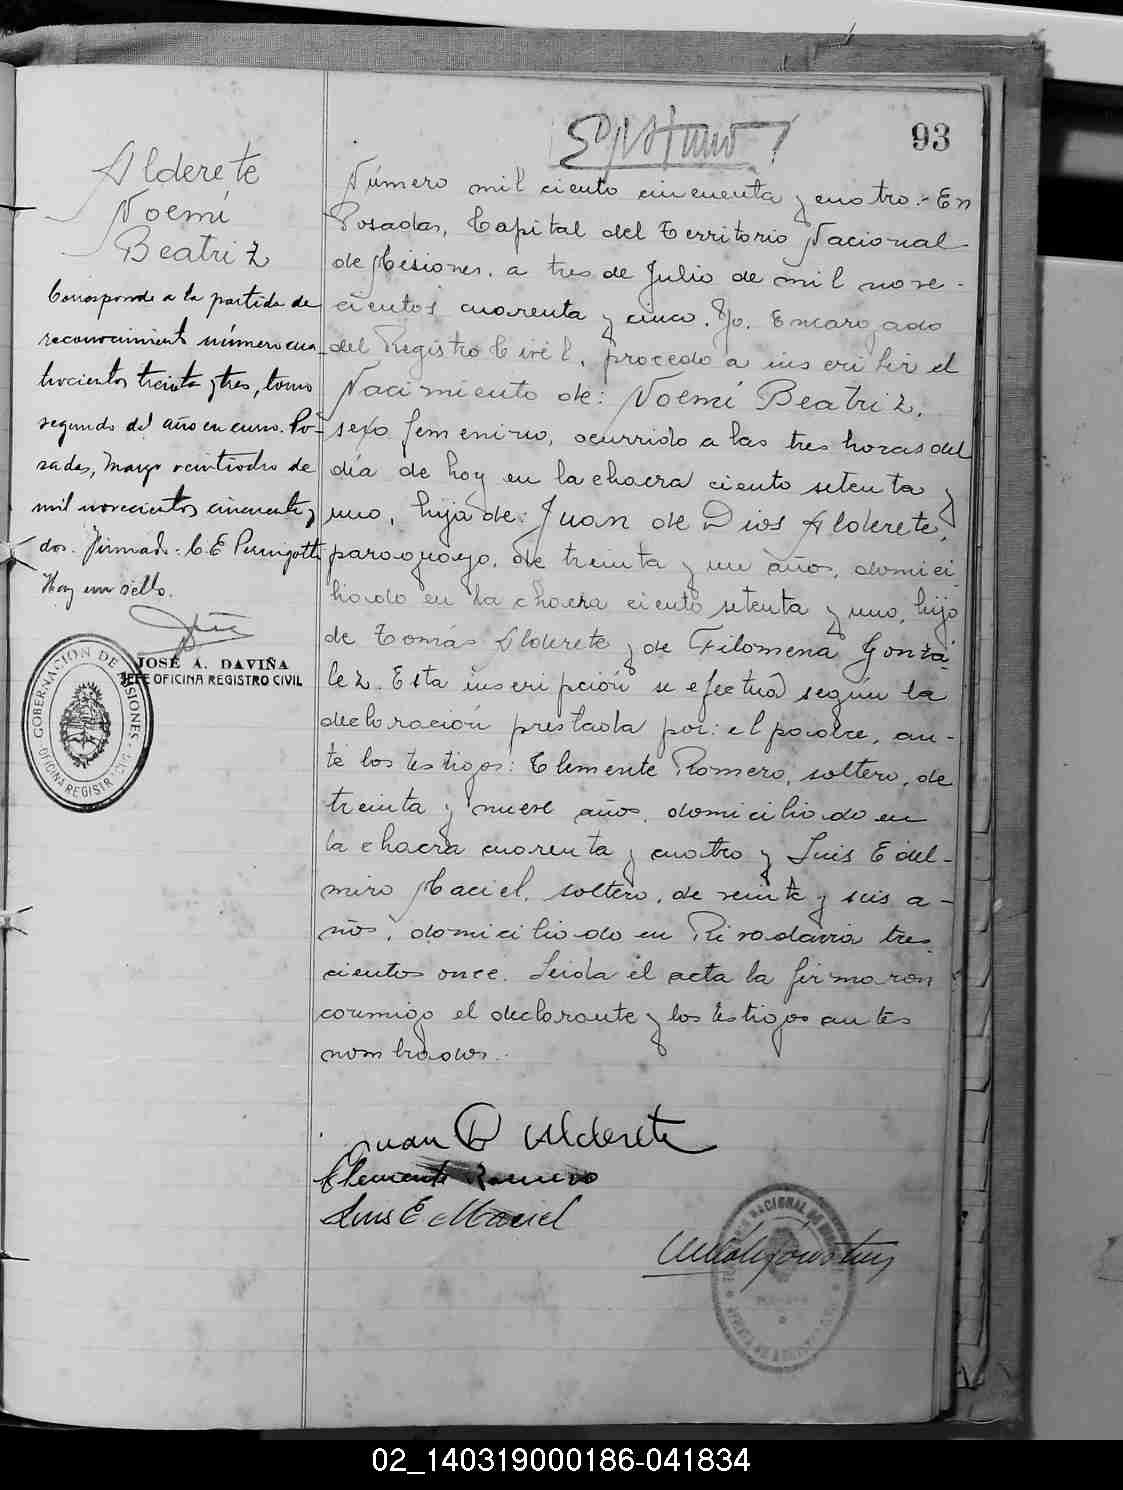 93
Alderete
Noemí
Beatriz
Corresponde a la partida de
reconocimiento número cua
trocientos treinta y tres, tomo
segundo del año en curso. Po-
sadas, Mayo veintiocho de
mil novecientos cincuenta y
dos. Firmado: C. E. Peringotti
Hay un sello.
JOSÉ A. DAVIÑA
JEFE OFICINA REGISTRO CIVIL
GOBERNACION DE MISIONES
OFICINA REGISTR CIVIL
Número mil ciento cincuenta y cuatro:- En
Posadas, Capital del Territorio Nacional
de Misiones, a tres de Julio de mil nove-
cientos cuarenta y cinco. Yo, Encargado
del Registro Civil, procedo a inscribir el
Nacimiento de: Noemí Beatriz,
sexo femenino, ocurrido a las tres horas del
día de hoy en la chacra ciento setenta y
uno, hija de: Juan de Dios Alderete,
paraguayo, de treinta y un años, domici
liado en la chacra ciento setenta y uno, hijo
de Tomás Alderete y de Filomena Gonzá
lez. Esta inscripción se efectuó según la
declaración prestada por: el padre, an-
te los testigos: Clemente Romero, soltero, de
treinta y nueve años, domiciliado en
la chacra cuarenta y cuatro y Luis Edel-
miro Maciel, soltero, de veinte y seis a-
ños, domiciliado en Rivadavia tres
cientos once. Leida el acta la firmaron
conmigo el declarante y los testigos antes
nombrados.
Juan D Alderete
Clemente Romero
Luis E Maciel
02_140319000186-041834